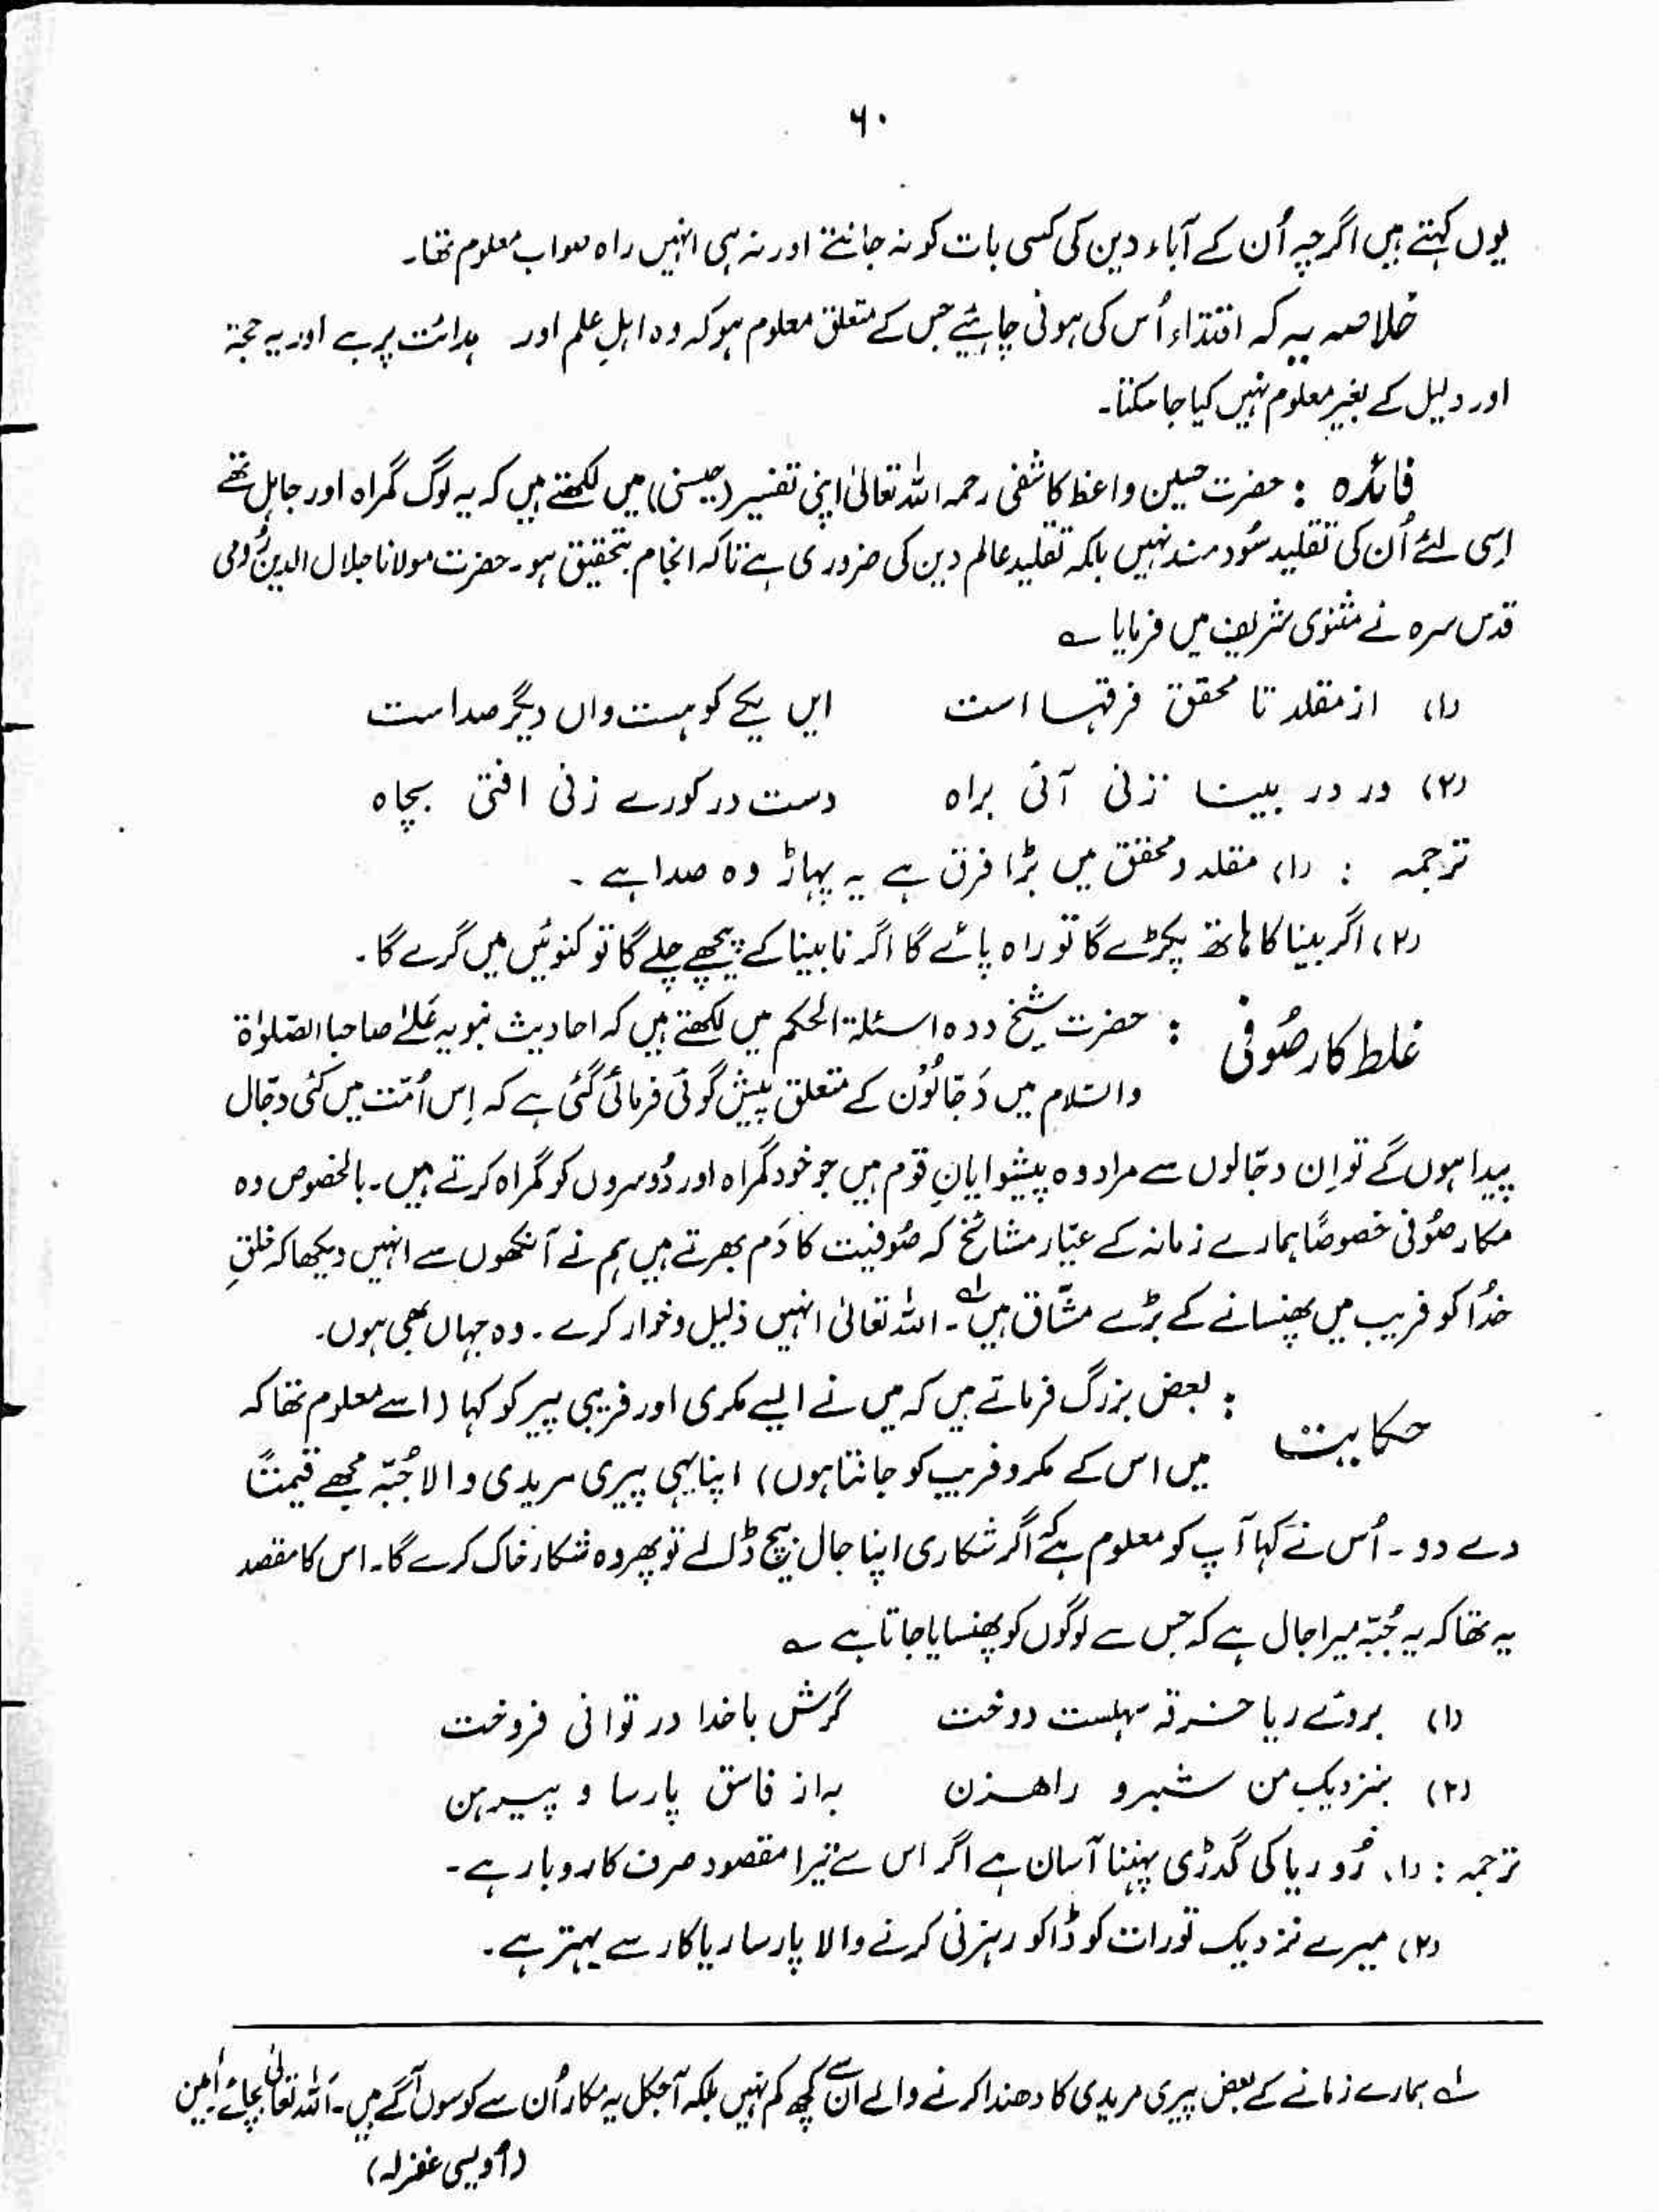 ۶۰
یوں کہتے ہیں اگرچہ اُن کے آباء دین کی کسی بات کو نہ جانتے اور نہ ہی انہیں راہ صواب معلوم تھا۔
خلاصہ یہ کہ اقتداء اُس کی ہونی چاہئیے جس کے متعلق معلوم ہو کہ وہ اہلِ علم اور ہدائت پر ہے اور یہ حجۃ
اور دلیل کے بغیر معلوم نہیں کیا جا سکتا۔
فائدہ : حضرت حسین واعظ کاشفی رحمہ اللہ تعالیٰ اپنی تفسیر (حسینی) میں لکھتے ہیں کہ یہ لوگ گمراہ اور جاہل تھے
اِسی لئے اُن کی تقلید سُود مند نہیں بلکہ تقلید عالم دین کی ضروری ہے تاکہ انجام بتحقیق ہو۔ حضرت مولانا جلال الدین رُومی
قدس سرہ نے مثنوی شریف میں فرمایا ؎
(۱) از مقلد تا محقق فرقہا است ایں یکے کوہست واں دیگر صدا ست
(۲) ور در بینا زنی آئی براہ دست در کورے زنی افتی بچاہ
ترجمہ : (۱) مقلد و محقق میں بڑا فرق ہے یہ پہاڑ وہ صدا ہے ۔
(۲) اگر بینا کا ہاتھ پکڑے گا تو راہ پائے گا اگر نابینا کے پیچھے چلے گا تو کنوئیں میں گرے گا۔
غلط کار صُوفی : حضرت شیخ ددہ اسئلۃ الحکم میں لکھتے ہیں کہ احادیث نبویہ عَلیٰ صاحبا الصّلوٰۃ
والسّلام میں دَجّالُوں کے متعلق پیش گوئی فرمائی گئی ہے کہ اِس اُمّت میں کئی دجّال
پیدا ہوں گے تو اِن دجّالوں سے مراد وہ پیشوایانِ قوم ہیں جو خود گمراہ اور دُوسروں کو گمراہ کرتے ہیں۔ بالخصوص وہ
مکار صُوفی خصوصًا ہمارے زمانہ کے عیّار مشائخ کہ صُوفیت کا دَم بھرتے ہیں ہم نے آنکھوں سے انہیں دیکھا کہ خلقِ
خدُا کو فریب میں پھنسانے کے بڑے مشّاق ہیں ؎۱۔ اللہ تعالیٰ انہیں ذلیل و خوار کرے ۔ وہ جہاں بھی ہوں۔
حکایت : بعض بزرگ فرماتے ہیں کہ میں نے ایسے مکری اور فریبی پیر کو کہا (اسے معلوم تھا کہ
میں اس کے مکر و فریب کو جانتا ہوں) اپنا یہی پیری مریدی والا جُبّہ مجھے قیمتًا
دے دو ۔ اُس نے کہا آپ کو معلوم ہے کہ اگر شکاری اپنا جال بیچ ڈالے تو پھر وہ شکار خاک کرے گا۔ اس کا مقصد
یہ تھا کہ یہ جُبّہ میرا جال ہے کہ جس سے لوگوں کو پھنسایا جاتا ہے ؎
(۱) بروئے ریا خرقہ سہلست دوخت گرش باخدا در توانی فروخت
(۲) بنزدیک من شبرو راھزن بہ از فاسق پارسا و پیرہن
ترجمہ : (۱) رُو ریا کی گدڑی پہننا آسان ہے اگر اس سے تیرا مقصود صرف کاروبار ہے۔
(۲) میرے نزدیک تو رات کو ڈاکو رہزنی کرنے والا پارسا ریاکار سے بہتر ہے۔
؎۱ ہمارے زمانے کے بعض پیری مریدی کا دھندا کرنے والے ان سے کچھ کم نہیں بلکہ آجکل یہ مکار اُن سے کوسوں آگے ہیں۔ اَللہ تعالیٰ بچائے اٰمین
(اُویسی غفرلہ)